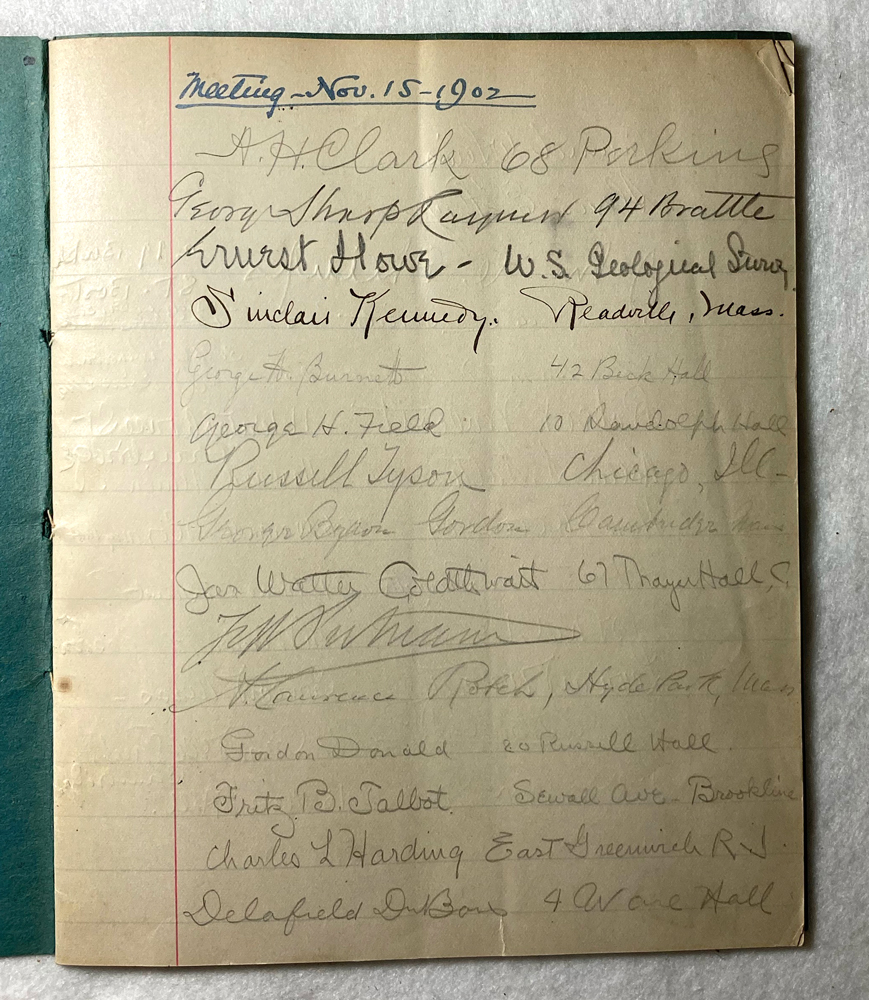 Meeting - Nov. 15 - 1902
A. H. Clark 68 Perkins
George Sharp Raymer 94 Brattle
Ernest Howe - U.S. Geological Survey
Sinclair Kennedy. Readville, Mass.
George H. Burnett 42 Beck Hall
George H. Field 10 Randolph Hall
Russell Tyson Chicago, Ill -
George Byron Gordon Cambridge Mass
Jas Walter Goldthwait 67 Thayer Hall,
Putnam
A. Lawrence Rotch, Hyde Park, Mass
Gordon Donald 20 Russell Hall.
Fritz B. Talbot. Sewall Ave - Brookline
Charles L Harding East Greenwich R.I.
Delafield DuBois 4 Ware Hall